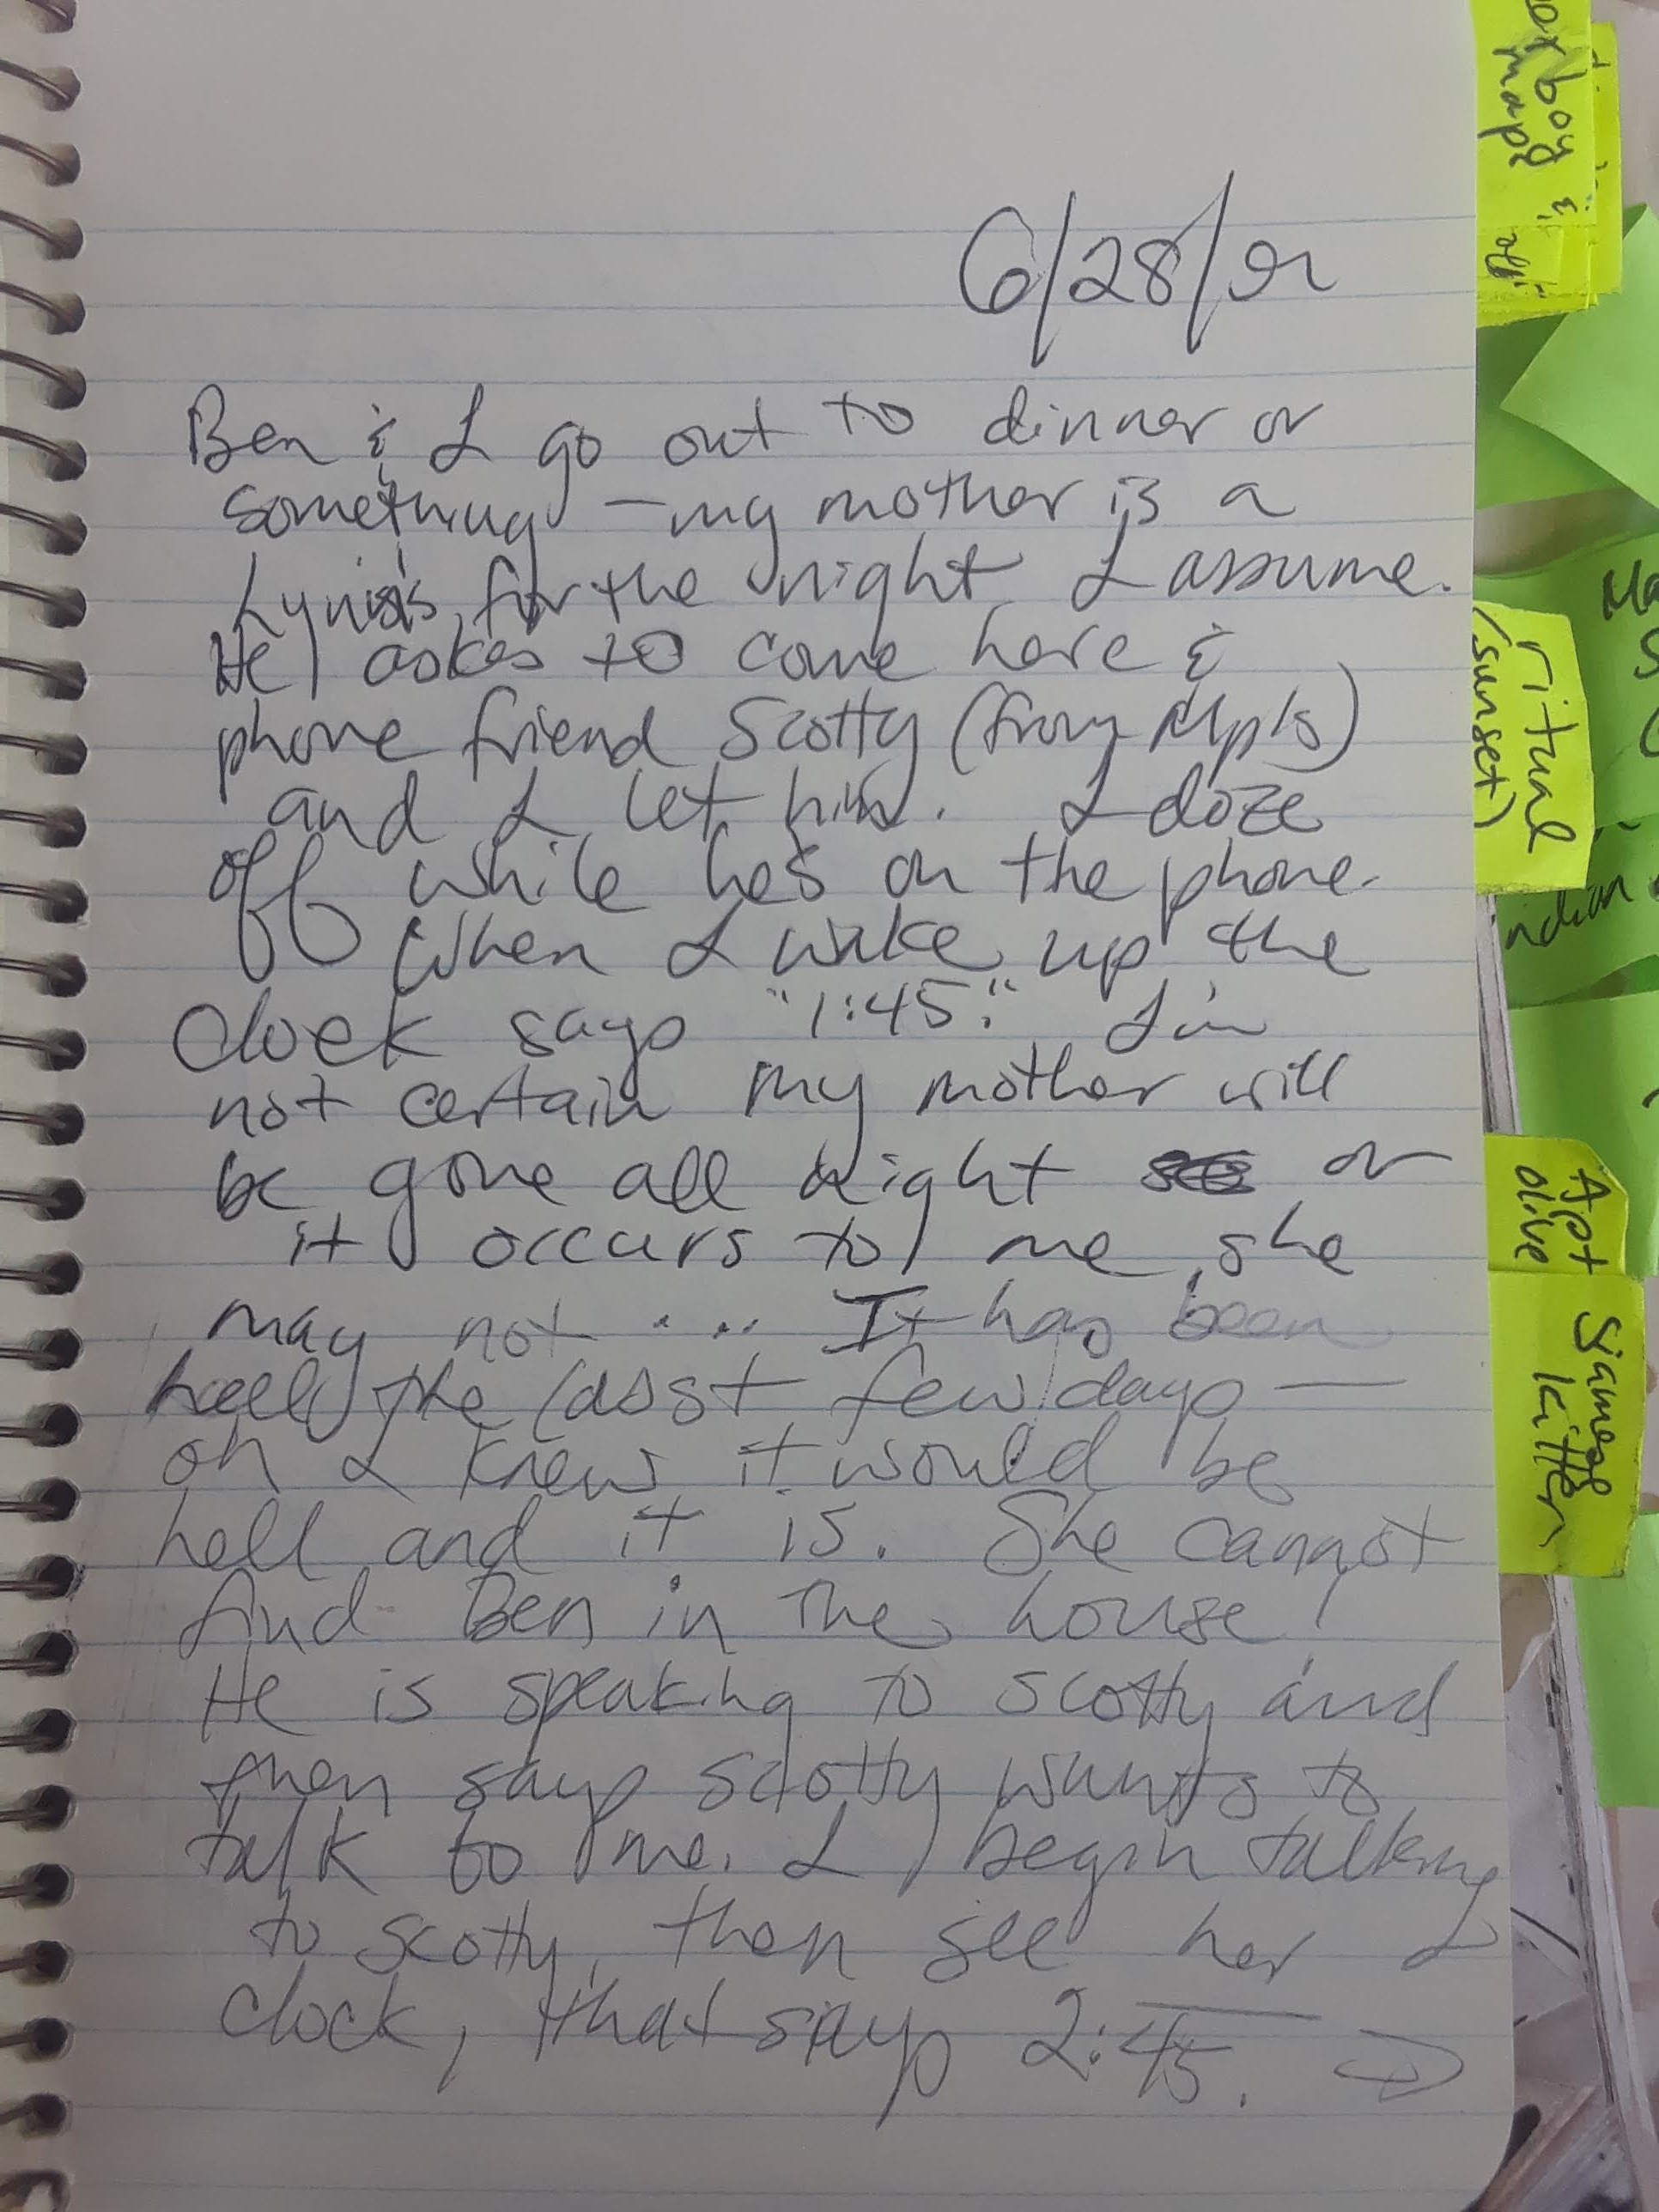 6/28/92
Ben & I go out to dinner or
something – my mother is a
Lynn's for the night I assume.
He asks to come here &
phone friend Scotty (from Mpls)
and I let him. I doze
off while he's on the phone.
When I wake up the
clock says "1:45." I'm
not certain my mother will
be gone all night or
it occurs to me she
may not .... It has been
hell the lasst few days —
oh I knew it would be
hell and it is. She cannot
find Ben in the house!
He is speaking to Scotty and
then says Scotty wants to
talk to me. I begin talking
to Scotty, then see her
clock, that says 2:45. →
boy &
map
ritual
(sunset)
Apt
olive
Siamese
kitten
indian